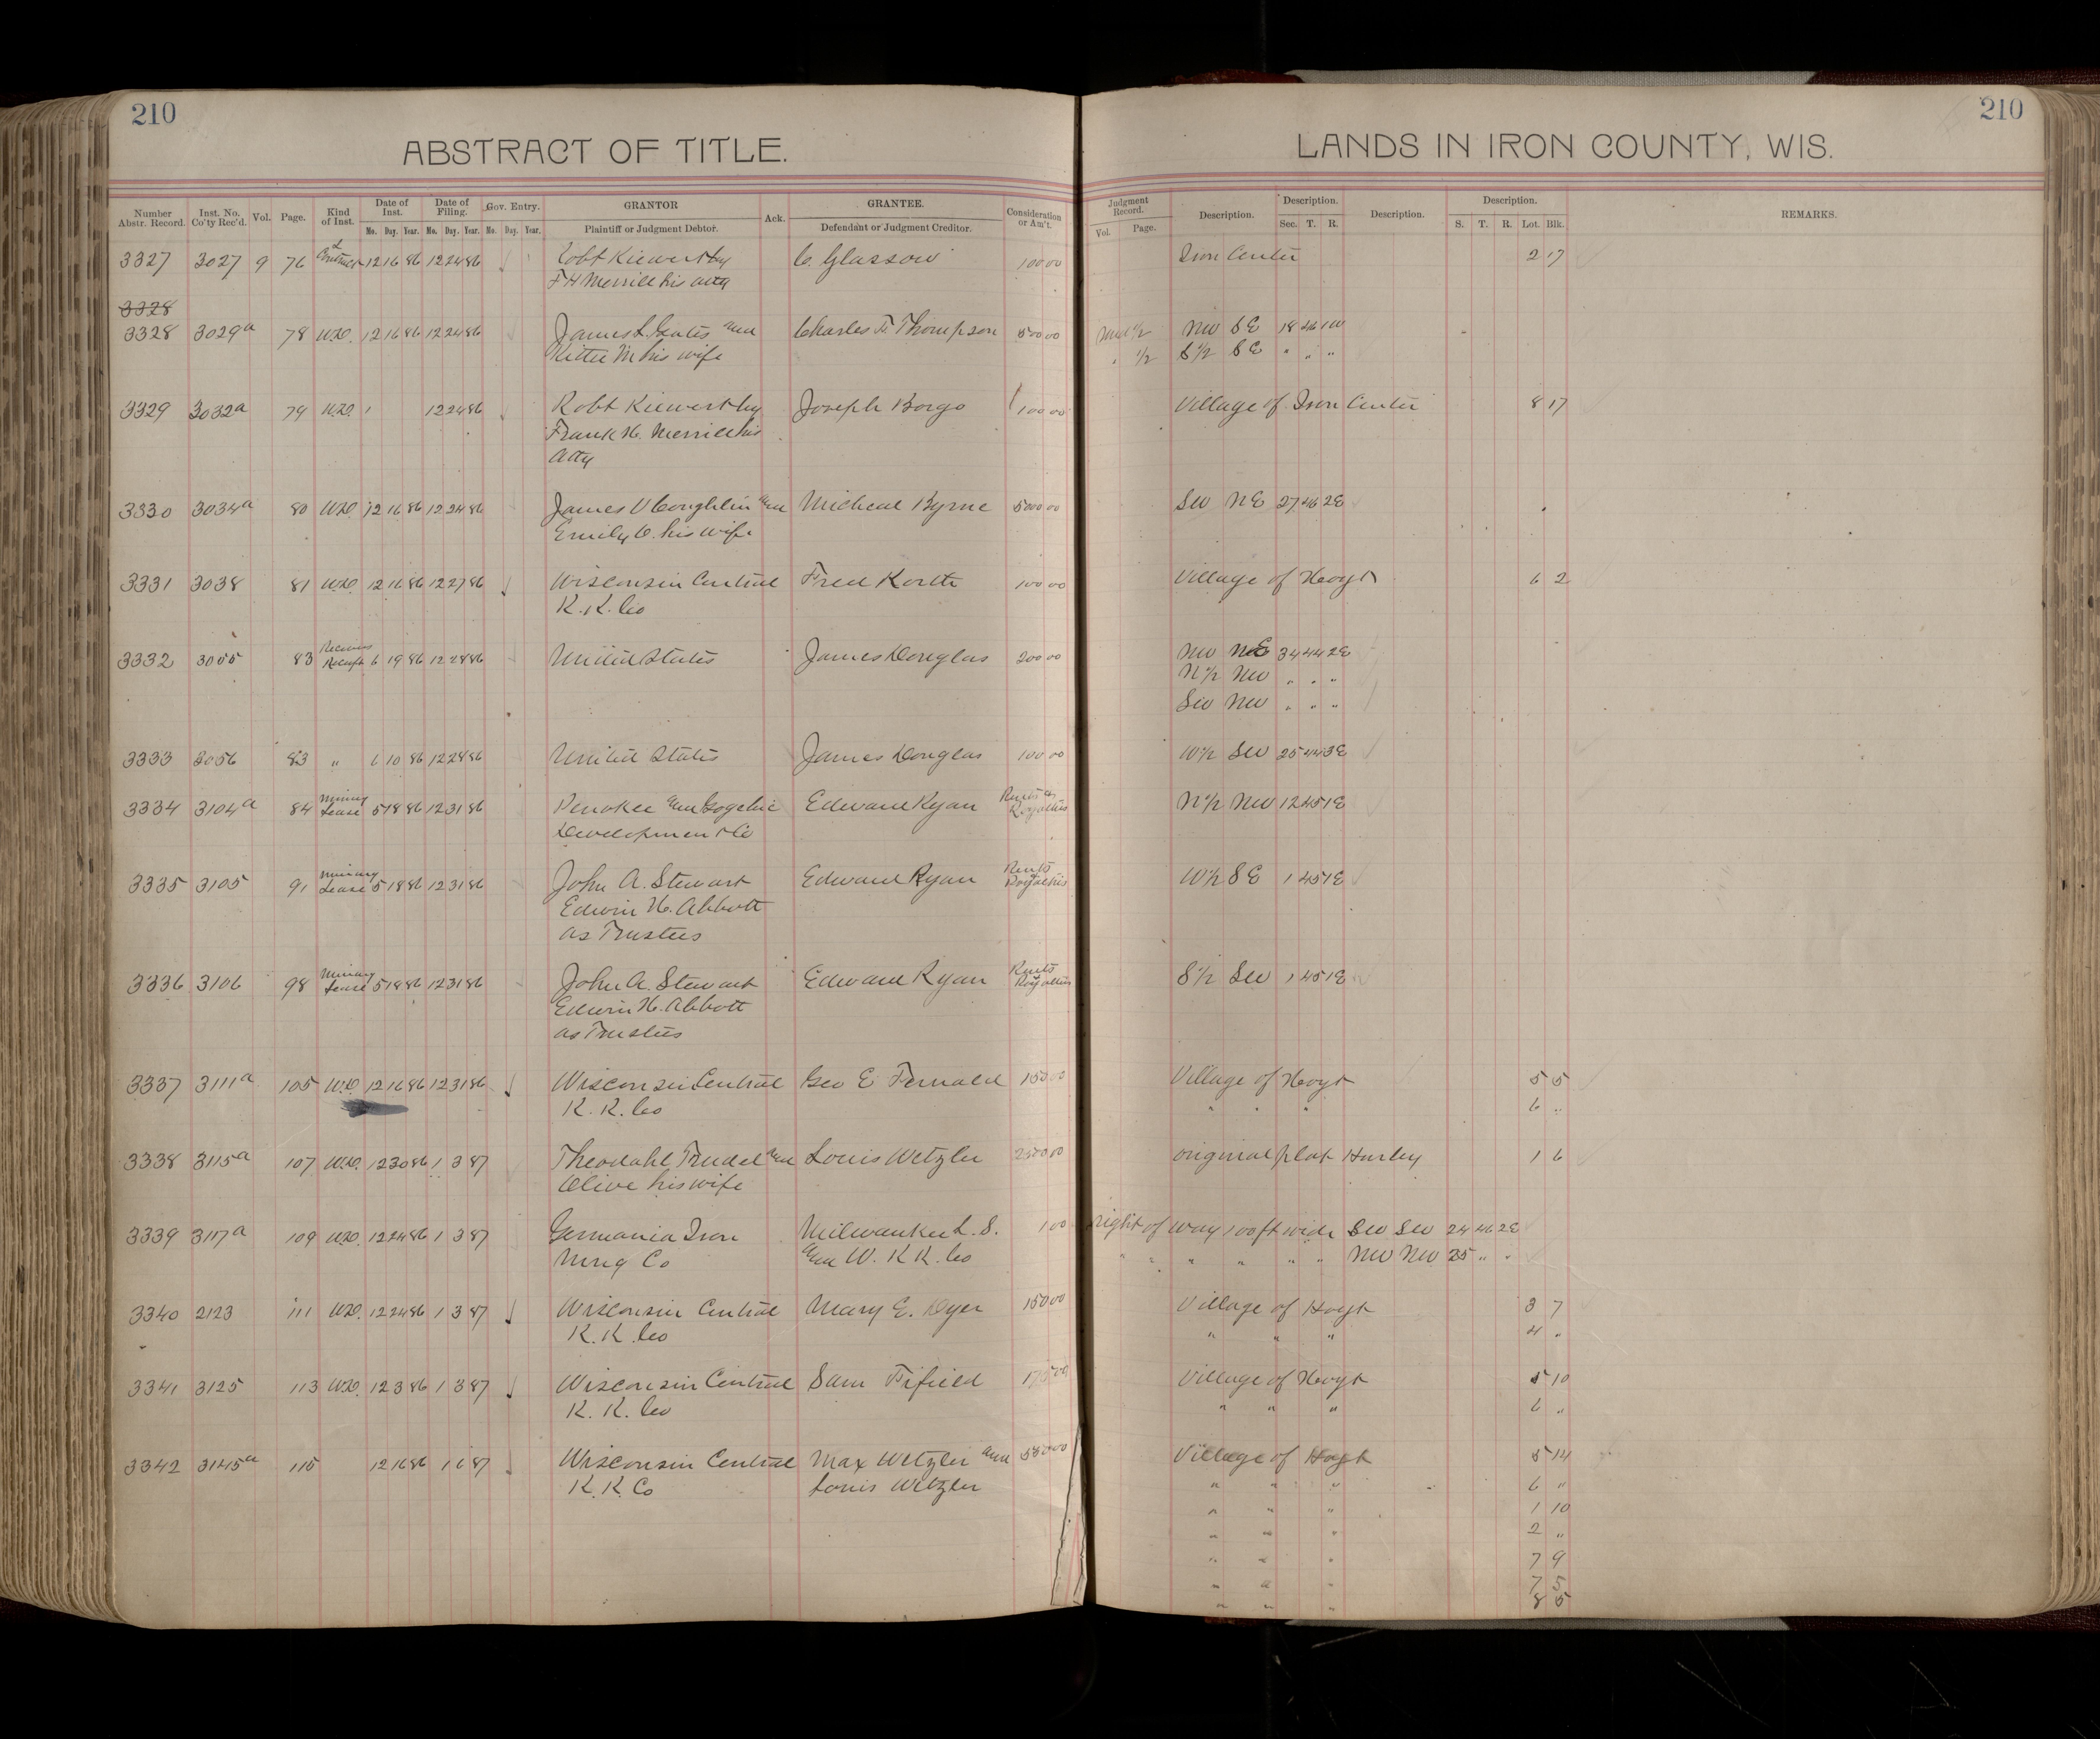 210
210
ABSTRACT OF TITLE.
LANDS IN IRON COUNTY, WIS.
Number Abstr. Record. Inst. No. Co'ty Rec'd. Vol. Page. Kind of Inst. Date of Inst. Mo. Day. Year. Date of Filing. Mo. Day. Year. Gov. Entry. Mo. Day. Year. GRANTOR Plaintiff or Judgment Debtor. Ack. GRANTEE. Defendant or Judgment Creditor. Consideration or Am't. Judgment Record. Vol. Page. Description. Description. Sec. T. R. Description. Description. S. T. R. Lot. Blk. REMARKS.
3327 3027 9 76 Contract 12 16 86 12 24 86 Robt C. Glasson 100 00 Iron Center 2 17
F H Merrill his atty
3328
3328 3029a 78 W.D. 12 16 86 12 24 86 James L. Gates and Charles F. Thompson 500 00 Und 1/2 NW SE 18 46 1W
Kittie M his wife " 1/2 S 1/2 SE " " "
3329 3032a 79 W.D. 1 12 24 86 Robt Joseph Borgo 100 00 Village of Iron Center 8 17
Frank H. Merrill his
atty
3330 3034a 80 W.D. 12 16 86 12 24 86 James Coughlin and Micheal Byrne 5000 00 SW NE 27 46 2E
Emily C. his wife
3331 3038 81 W.D. 12 16 86 12 27 86 Wisconsin Central Fred Korth 100 00 Village of Hoyt 6 2
R. R. Co
3332 3055 83 Receivers Receipt 6 19 86 12 28 86 United States James Douglas 200 00 NW NE 34 44 2E
N 1/2 NW " " "
SW NW " " "
3333 3056 83 " 6 10 86 12 28 86 United States James Douglas 100 00 W 1/2 SW 25 44 3E
3334 3104a 84 Mining Lease 5 18 86 12 31 86 Penokee and Gogebic Edward Ryan Rents & Royalties N 1/2 NW 12 45 1E
Development Co
3335 3105 91 Mining Lease 5 18 86 12 31 86 John A. Stewart Edward Ryan Rents & Royalties W 1/2 SE 1 45 1E
Edwin H. Abbott
as Trustees
3336 3106 98 Mining Lease 5 18 86 12 31 86 John A. Stewart Edward Ryan Rents & Royalties S 1/2 SW 1 45 1E
Edwin H. Abbott
as Trustees
3337 3111a 105 W.D. 12 16 86 12 31 86 Wisconsin Central Geo E Fernald 150 00 Village of Hoyt 5 5
R. R. Co " " " 6 "
3338 3115a 107 W.D. 12 30 86 1 3 87 Theodahl Trudel and Louis Wetzler 2500 00 original plat Hurley 1 6
Olive his wife
3339 3117a 109 W.D. 12 24 86 1 3 87 Germania Iron Milwaukee L. S. 1 00 right of way 100 ft wide SW SW 24 46 2E
Mng Co and W. R R. Co " " " " " " NW NW 25 " "
3340 2123 111 W.D. 12 24 86 1 3 87 Wisconsin Central Mary E. Dyer 150 00 Village of Hoyt 3 7
R. R. Co " " " 4 "
3341 3125 113 W.D. 12 3 86 1 3 87 Wisconsin Central Sam Fifield 175 00 Village of Hoyt 5 10
R. R. Co " " " 6 "
3342 3145a 115 12 16 86 1 6 87 Wisconsin Central Max Wetzler and 550 00 Village of Hoyt 5 14
R. R. Co Louis Wetzler " " " 6 "
" " " 1 10
" " " 2 "
" " " 7 9
" " " 7 5
" " " 8 5